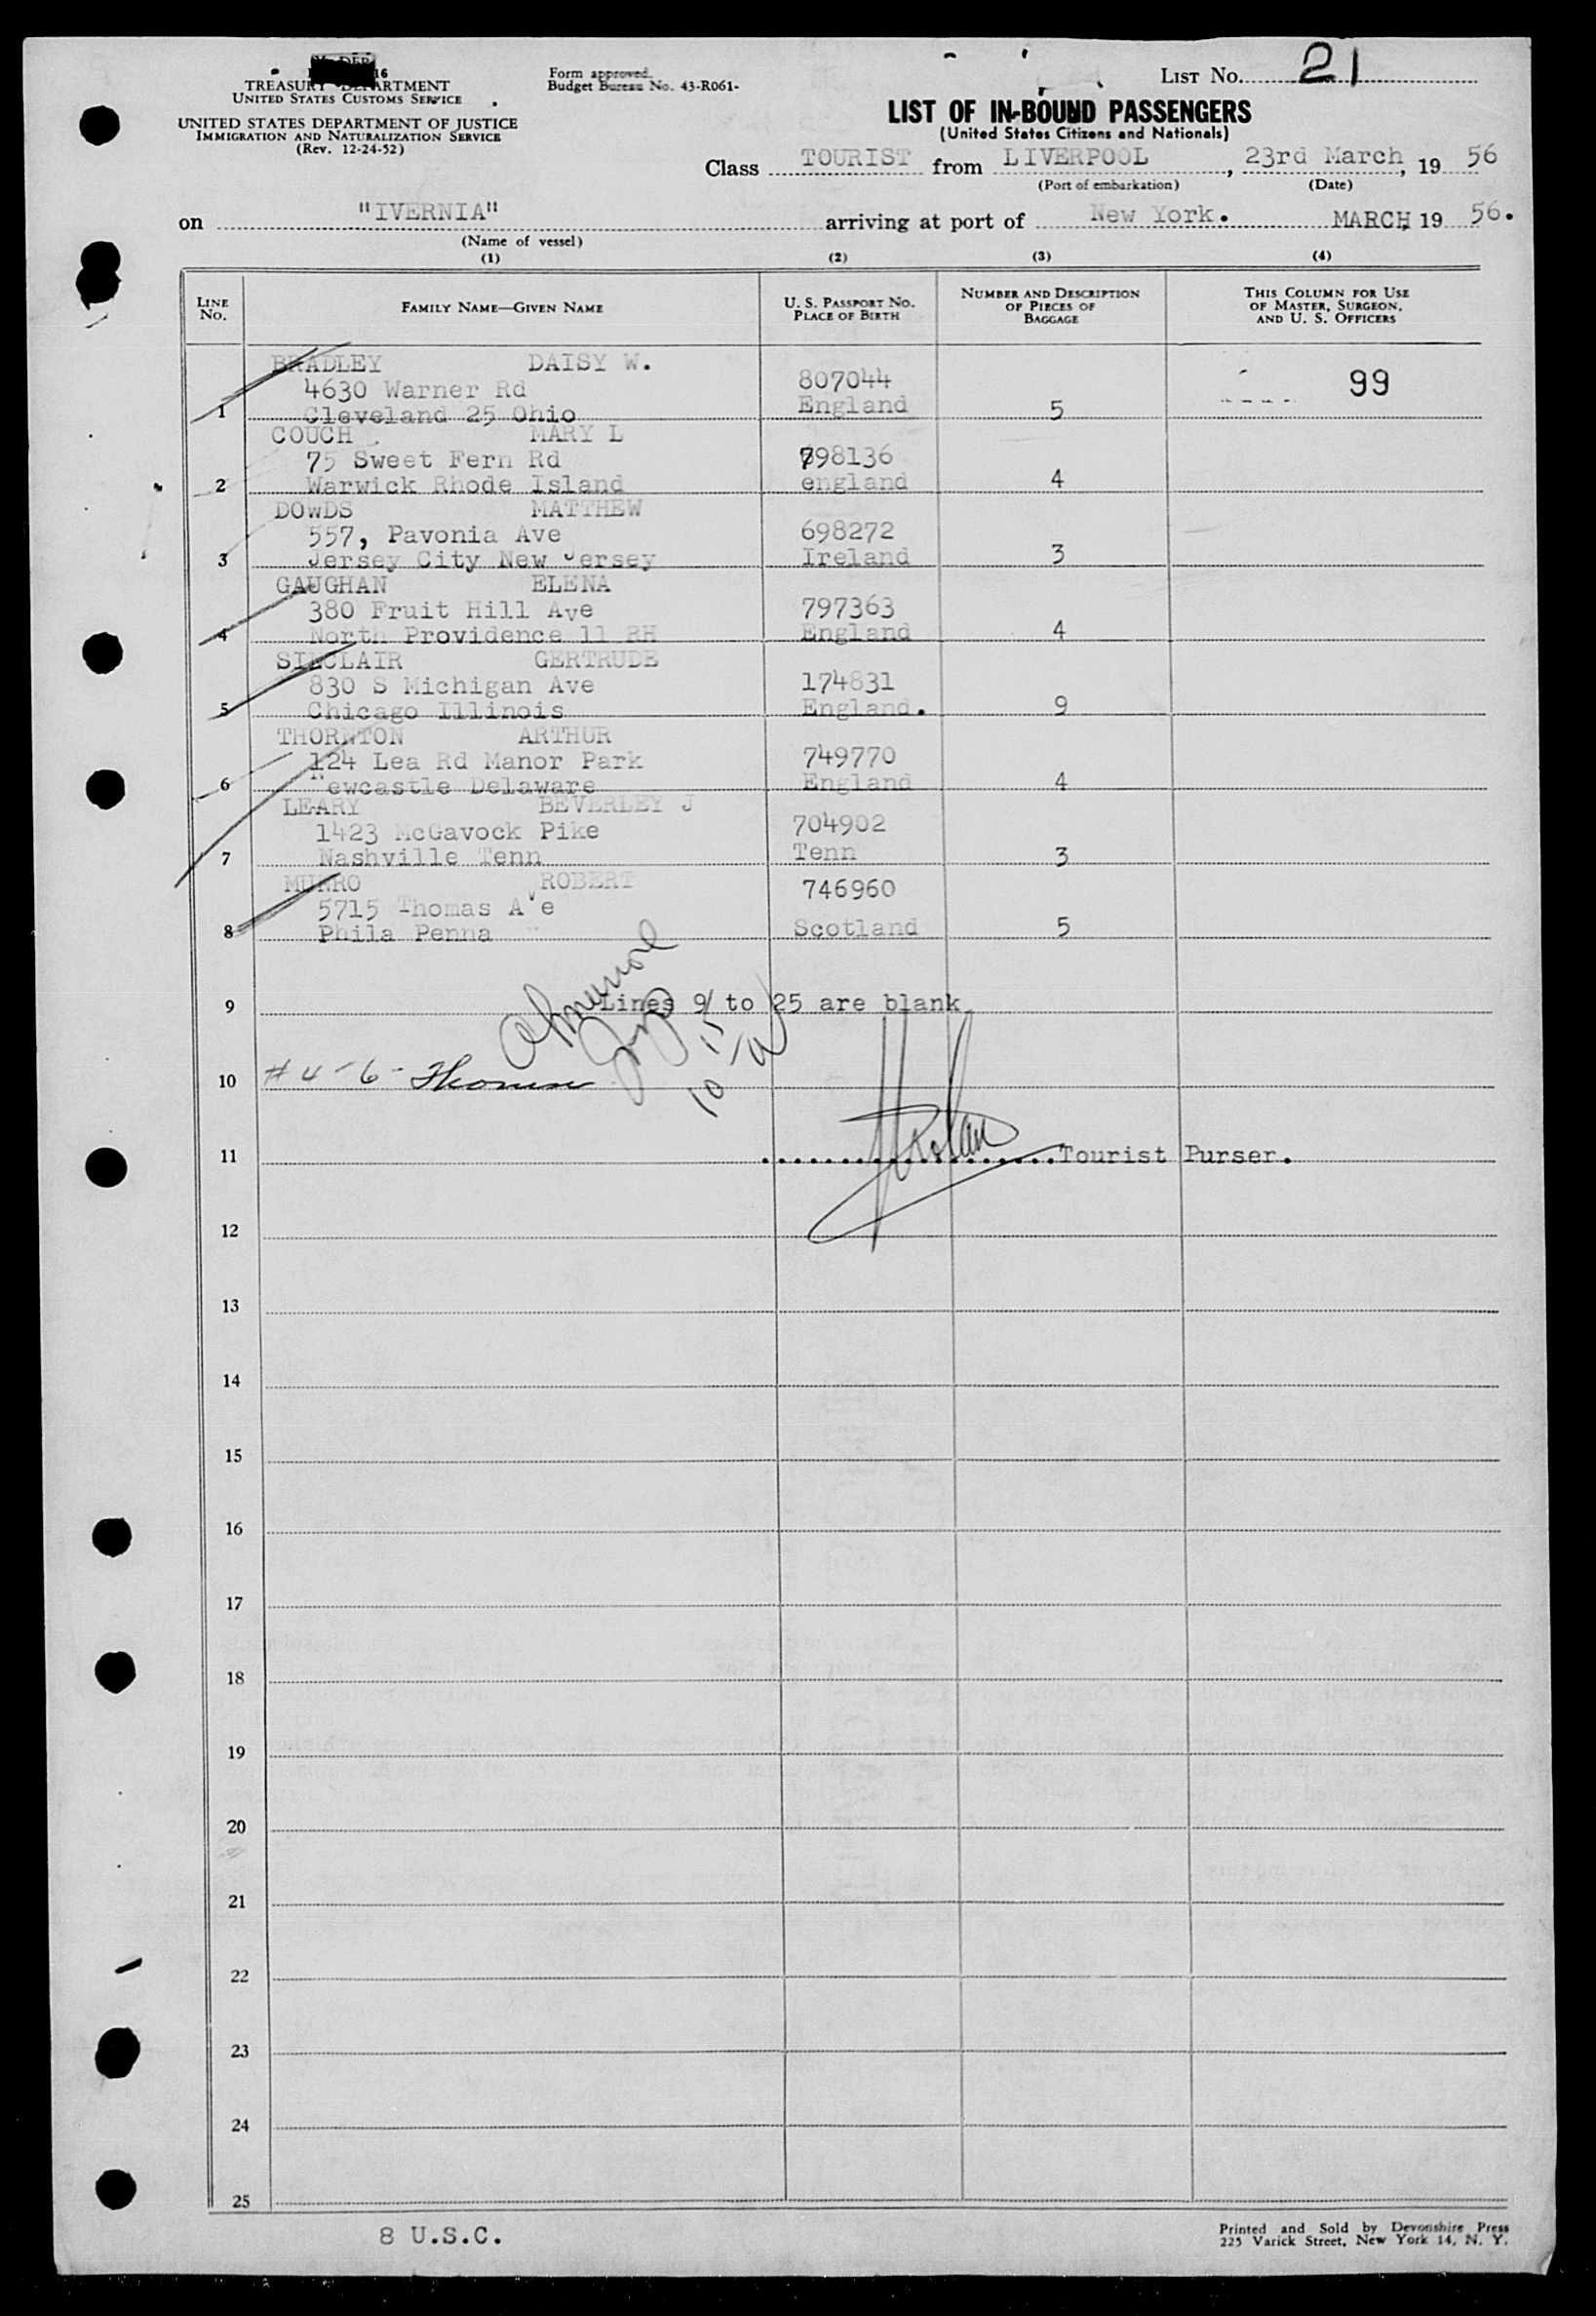 TREASURY DEPARTMENT
UNITED STATES CUSTOMS SERVICE
UNITED STATES DEPARTMENT OF JUSTICE
IMMIGRATION AND NATURALIZATION SERVICE
(Rev. 12-24-52)
Form approved.
Budget Bureau No. 43-R061-
LIST No. 21
LIST OF IN-BOUND PASSENGERS
(United States Citizens and Nationals)
Class TOURIST from LIVERPOOL, 23rd March, 19 56
(Port of embarkation) (Date)
on "IVERNIA" arriving at port of New York. MARCH, 19 56.
(Name of vessel)
(1) (2) (3) (4)
LINE No. FAMILY NAME—GIVEN NAME U. S. PASSPORT No. PLACE OF BIRTH NUMBER AND DESCRIPTION OF PIECES OF BAGGAGE THIS COLUMN FOR USE OF MASTER, SURGEON, AND U. S. OFFICERS
BRADLEY DAISY W.
4630 Warner Rd 807044 99
1 Cleveland 25 Ohio England 5
COUCH MARY L
75 Sweet Fern Rd 798136
2 Warwick Rhode Island england 4
DOWDS MATTHEW
557, Pavonia Ave 698272
3 Jersey City New Jersey Ireland 3
GAUGHAN ELENA
380 Fruit Hill Ave 797363
4 North Providence 11 RH England 4
SINCLAIR GERTRUDE
830 S Michigan Ave 174831
5 Chicago Illinois England. 9
THORNTON ARTHUR
124 Lea Rd Manor Park 749770
6 Newcastle Delaware England 4
LEARY BEVERLEY J
1423 McGavock Pike 704902
7 Nashville Tenn Tenn 3
MUNRO ROBERT 746960
5715 Thomas Ave
8 Phila Penna Scotland 5
9 Lines 9 to 25 are blank
10 # 4-6-
11 ....................Tourist Purser.
12
13
14
15
16
17
18
19
20
21
22
23
24
25
8 U.S.C.
Printed and Sold by Devonshire Press
225 Varick Street, New York 14, N. Y.